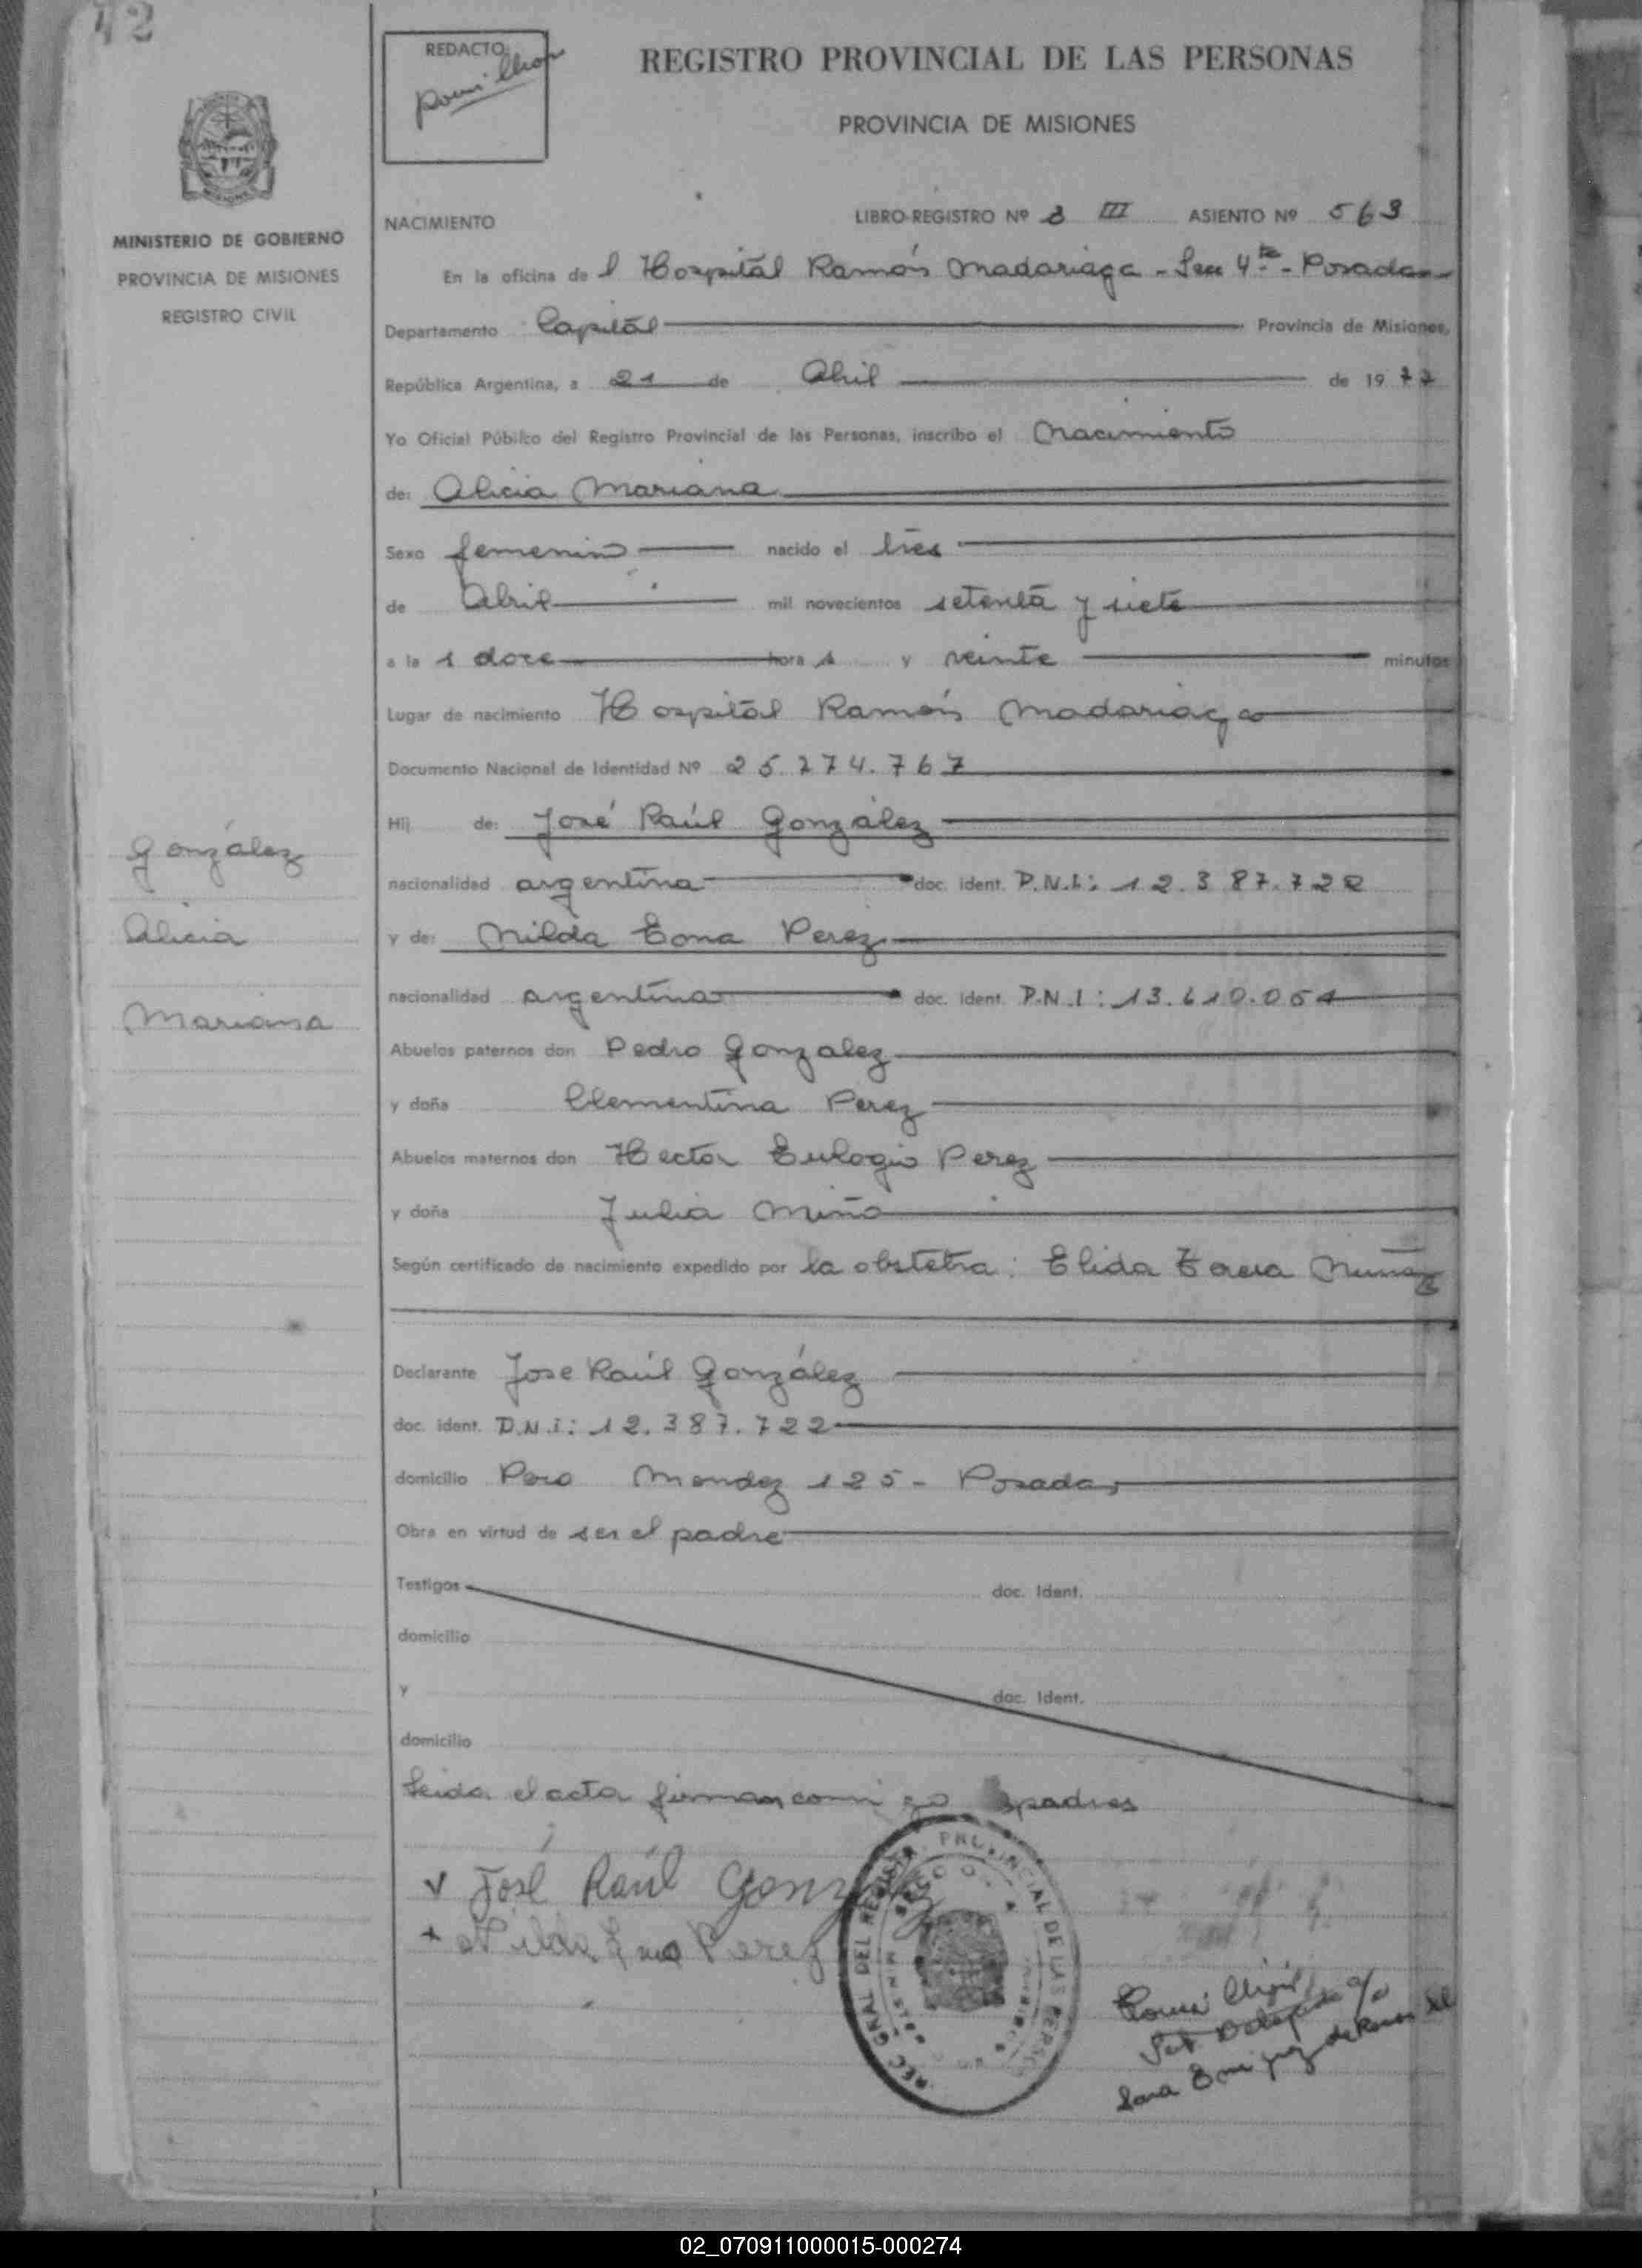 42
REDACTO:
REGISTRO PROVINCIAL DE LAS PERSONAS
PROVINCIA DE MISIONES
MINISTERIO DE GOBIERNO
PROVINCIA DE MISIONES
REGISTRO CIVIL
NACIMIENTO LIBRO-REGISTRO Nº 3 III ASIENTO Nº 563
En la oficina de l Hospital Ramón Madariaga - Secc 4ta - Posadas
Departamento Capital Provincia de Misiones,
República Argentina, a 21 de Abril de 1977
Yo Oficial Público del Registro Provincial de las Personas, inscribo el Nacimiento
de: Alicia Mariana
Sexo femenino nacido el tres
de Abril mil novecientos setenta y siete
a la s doce hora s y veinte minutos
Lugar de nacimiento Hospital Ramón Madariaga
Documento Nacional de Identidad Nº 25.774.767
Hij de: José Raúl González
nacionalidad argentina doc. ident. D.N.I: 12.387.722
y de: Nilda Ema Perez
nacionalidad argentina doc. ident. D.N.I: 13.610.054
Abuelos paternos don Pedro Gonzalez
y doña Clementina Perez
Abuelos maternos don Hector Eulogio Perez
y doña Julia Miño
Según certificado de nacimiento expedido por la obstetra: Elida
Declarante Jose Raúl González
doc. ident. D.N.i: 12.387.722
domicilio Pero Mendez 125 - Posadas
Obra en virtud de ser el padre
Testigos doc. Ident.
domicilio
y doc. Ident.
domicilio
Leida el acta firman conmigo padres
José Raúl Gonzalez
Nilda Ema Perez
González
Alicia
Mariana
02_070911000015-000274